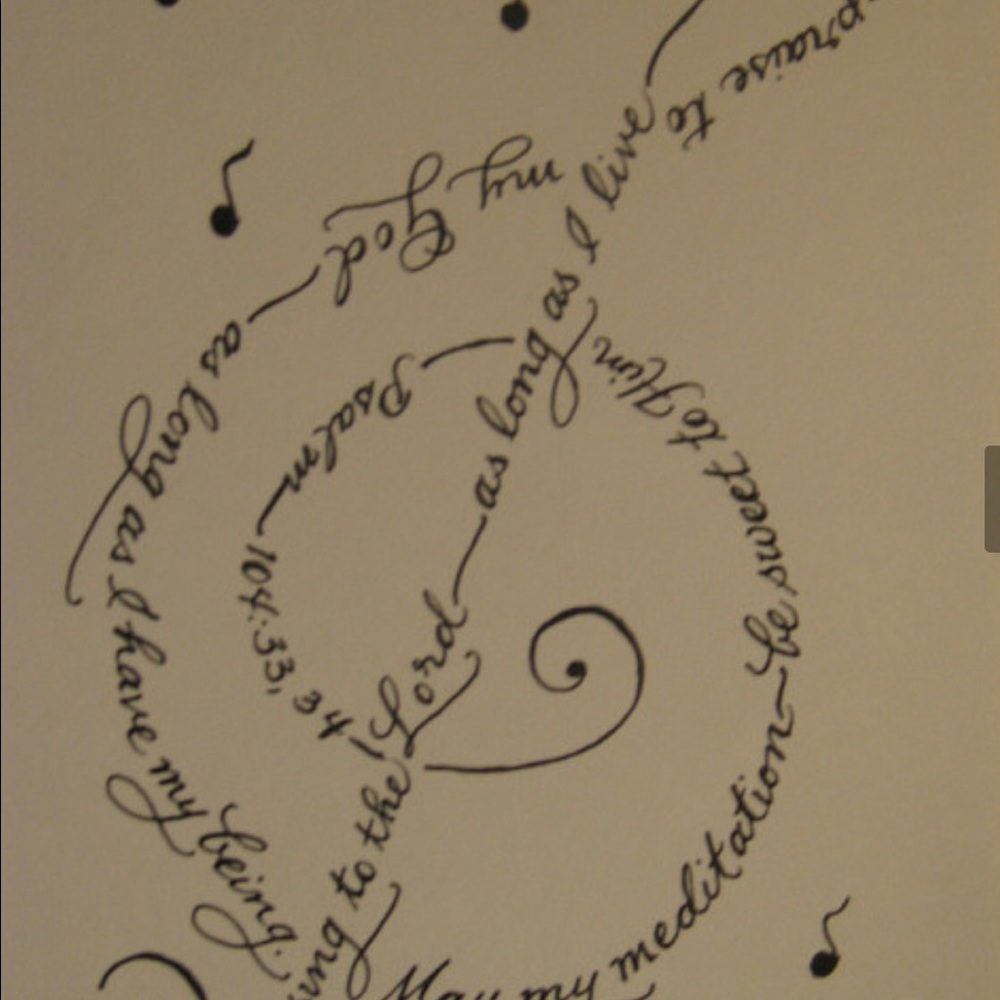 ing to the Lord — as long as I live —
praise to my God — as long as I have my being.
May my meditation — be sweet to Him
— Psalm — 104:33, 34